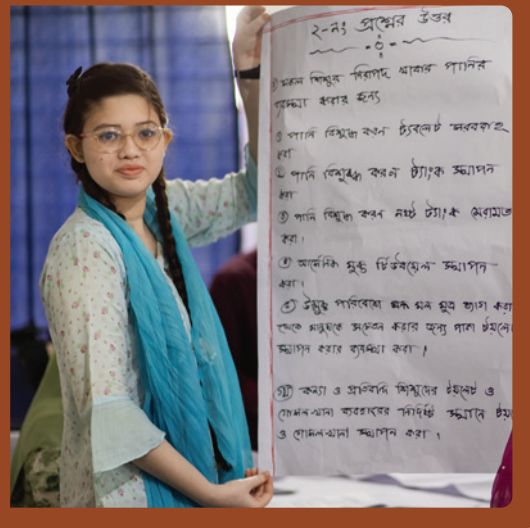 ২-নং প্রশ্নের উত্তর
① সকল শিশুর নিরাপদ খাবার পানির
ব্যবস্থা করার জন্য
① পানি বিশুদ্ধ করন ট্যাবলেট সরবরাহ
করা
② পানি বিশুদ্ধ করন ট্যাংক স্থাপন
করা
③ পানি বিশুদ্ধ করন নষ্ট ট্যাংক মেরামত
করা।
④ আর্সেনিক মুক্ত টিউবয়েল স্থাপন
করা।
⑤ উন্মুক্ত পরিবেশে মল মুত্র ত্যাগ করা
থেকে মানুষকে সচেতন করার জন্য পাকা
স্থাপন করার ব্যবস্থা করা।
কন্যা ও প্রতিবন্ধি শিশুদের টয়লেট ও
গোসলখানা ব্যবহারের নির্দিষ্ট স্থানে
ও গোসলখানা স্থাপন করা।